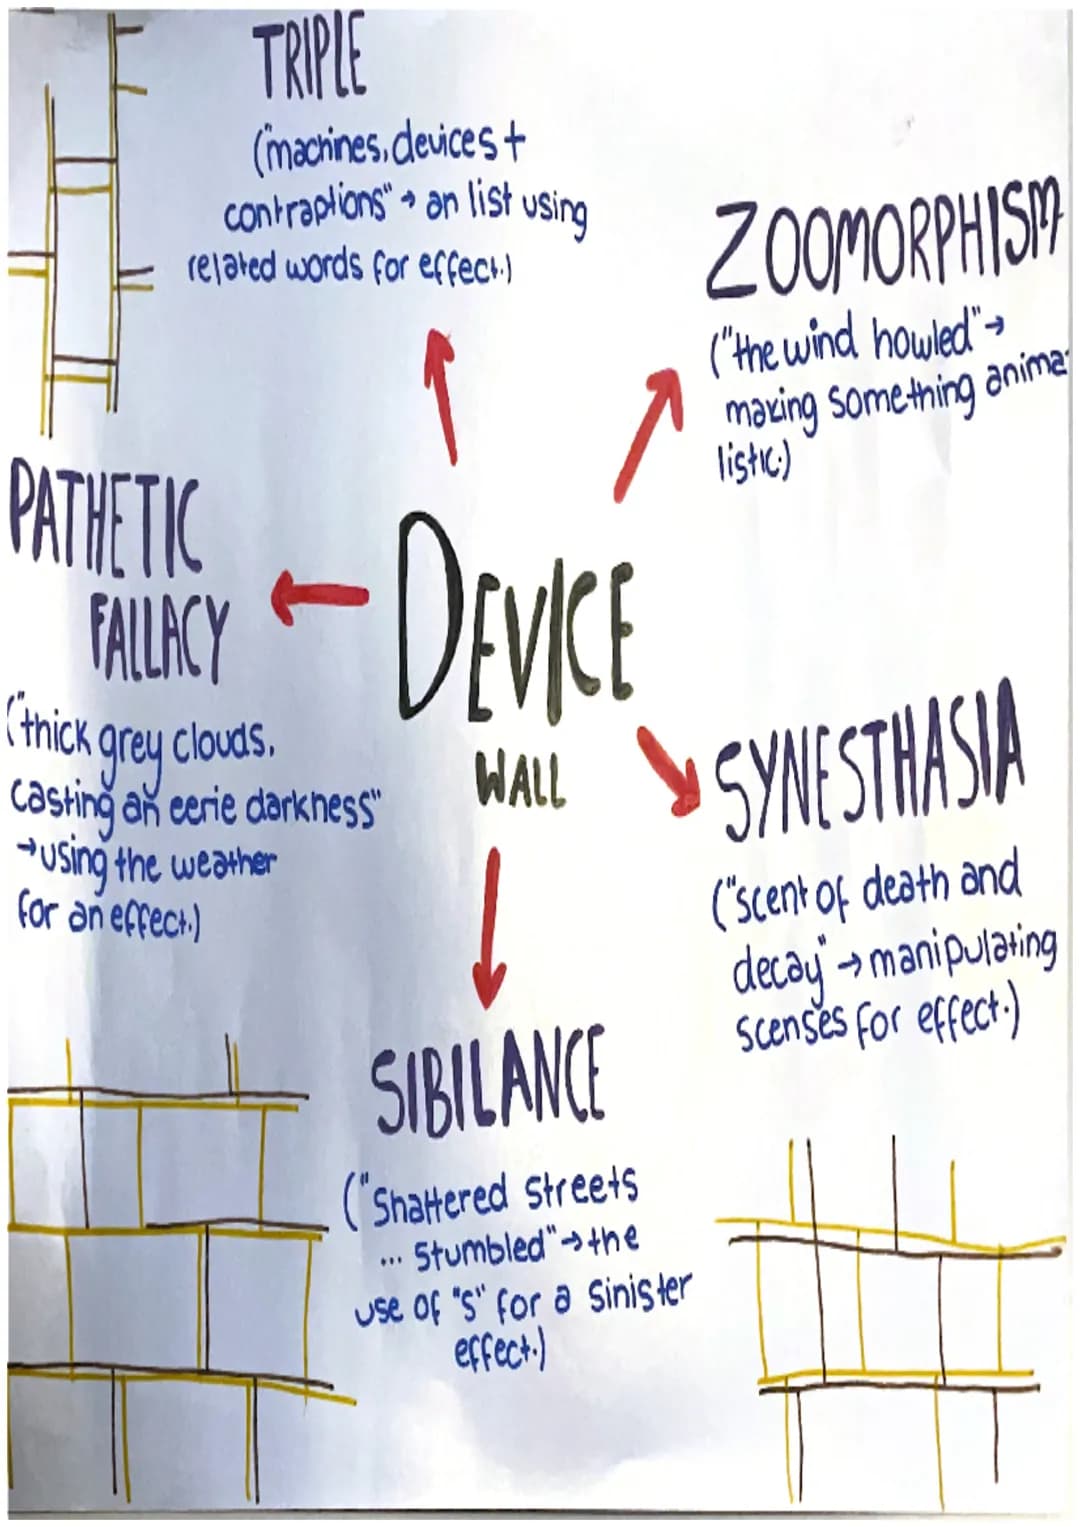 TRIPLE
("machines, devices +
contraptions" → an list using
related words for effect.)
ZOOMORPHISM
("the wind howled" →
making something anima-
listic.)
PATHETIC
FALLACY
("thick grey clouds,
casting an eerie darkness"
→ using the weather
for an effect.)
DEVICE
WALL
SYNESTHASIA
("scent of death and
decay" → manipulating
scenses for effect.)
SIBILANCE
("Shattered streets
... stumbled" → the
use of "s" for a sinister
effect.)